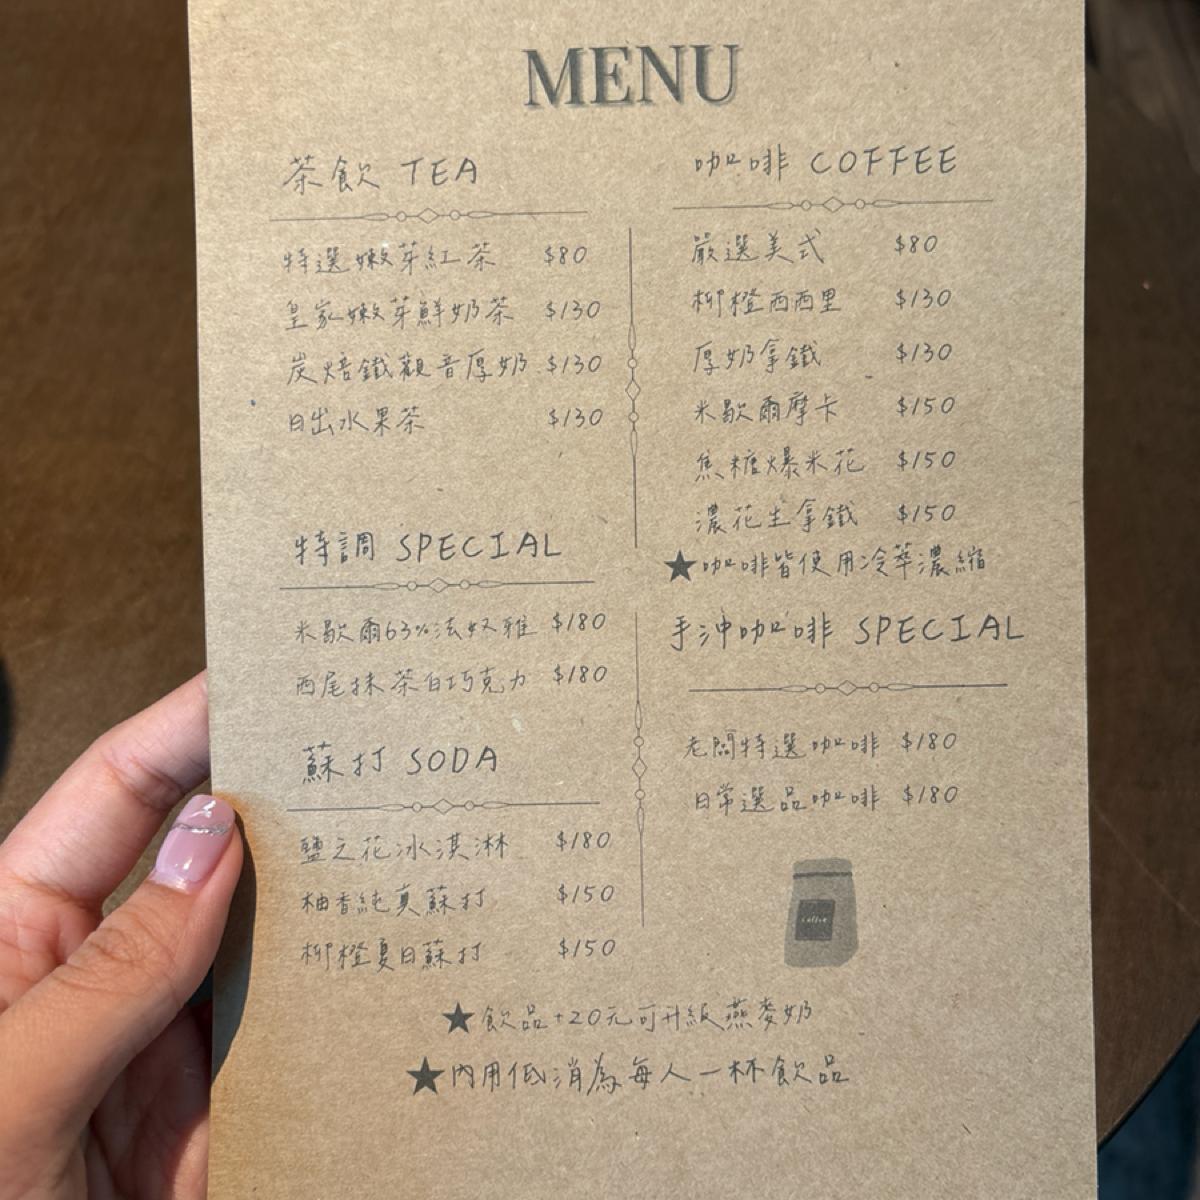 MENU
茶飲 TEA
特選嫩芽紅茶 $80
皇家嫩芽鮮奶茶 $130
炭焙鐵觀音厚奶 $130
日出水果茶 $130
特調 SPECIAL
米歇爾63%法奴雅 $180
西尾抹茶白巧克力 $180
蘇打 SODA
鹽之花冰淇淋 $180
柚香純真蘇打 $150
柳橙夏日蘇打 $150
咖啡 COFFEE
嚴選美式 $80
柳橙西西里 $130
厚奶拿鐵 $130
米歇爾摩卡 $150
焦糖爆米花 $150
濃花生拿鐵 $150
★咖啡皆使用冷萃濃縮
手沖咖啡 SPECIAL
老闆特選咖啡 $180
日常選品咖啡 $180
coffee
★飲品+20元可升級燕麥奶
★內用低消為每人一杯飲品